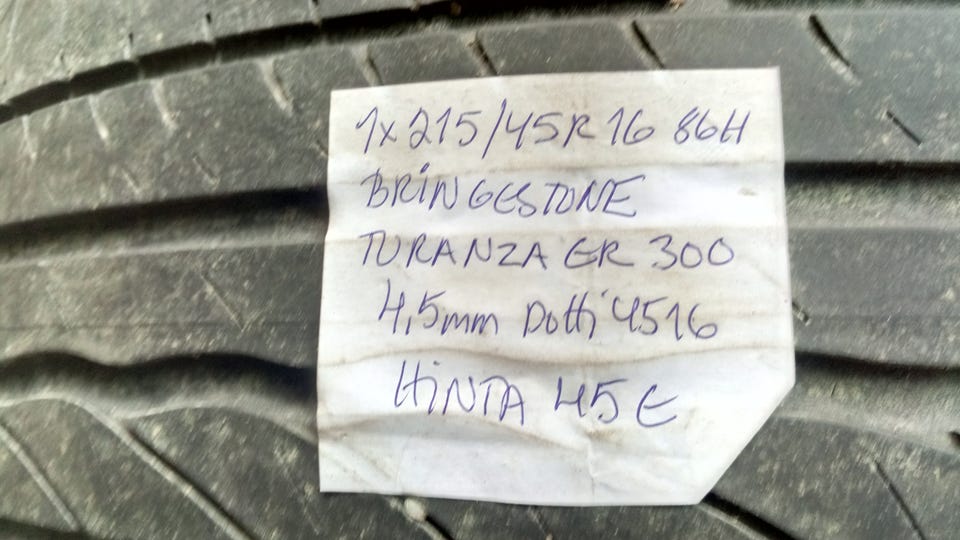 1x 215/45R 16 86H
BRINGESTONE
TURANZA ER 300
4,5mm Dotti 4516
HINTA 45 E